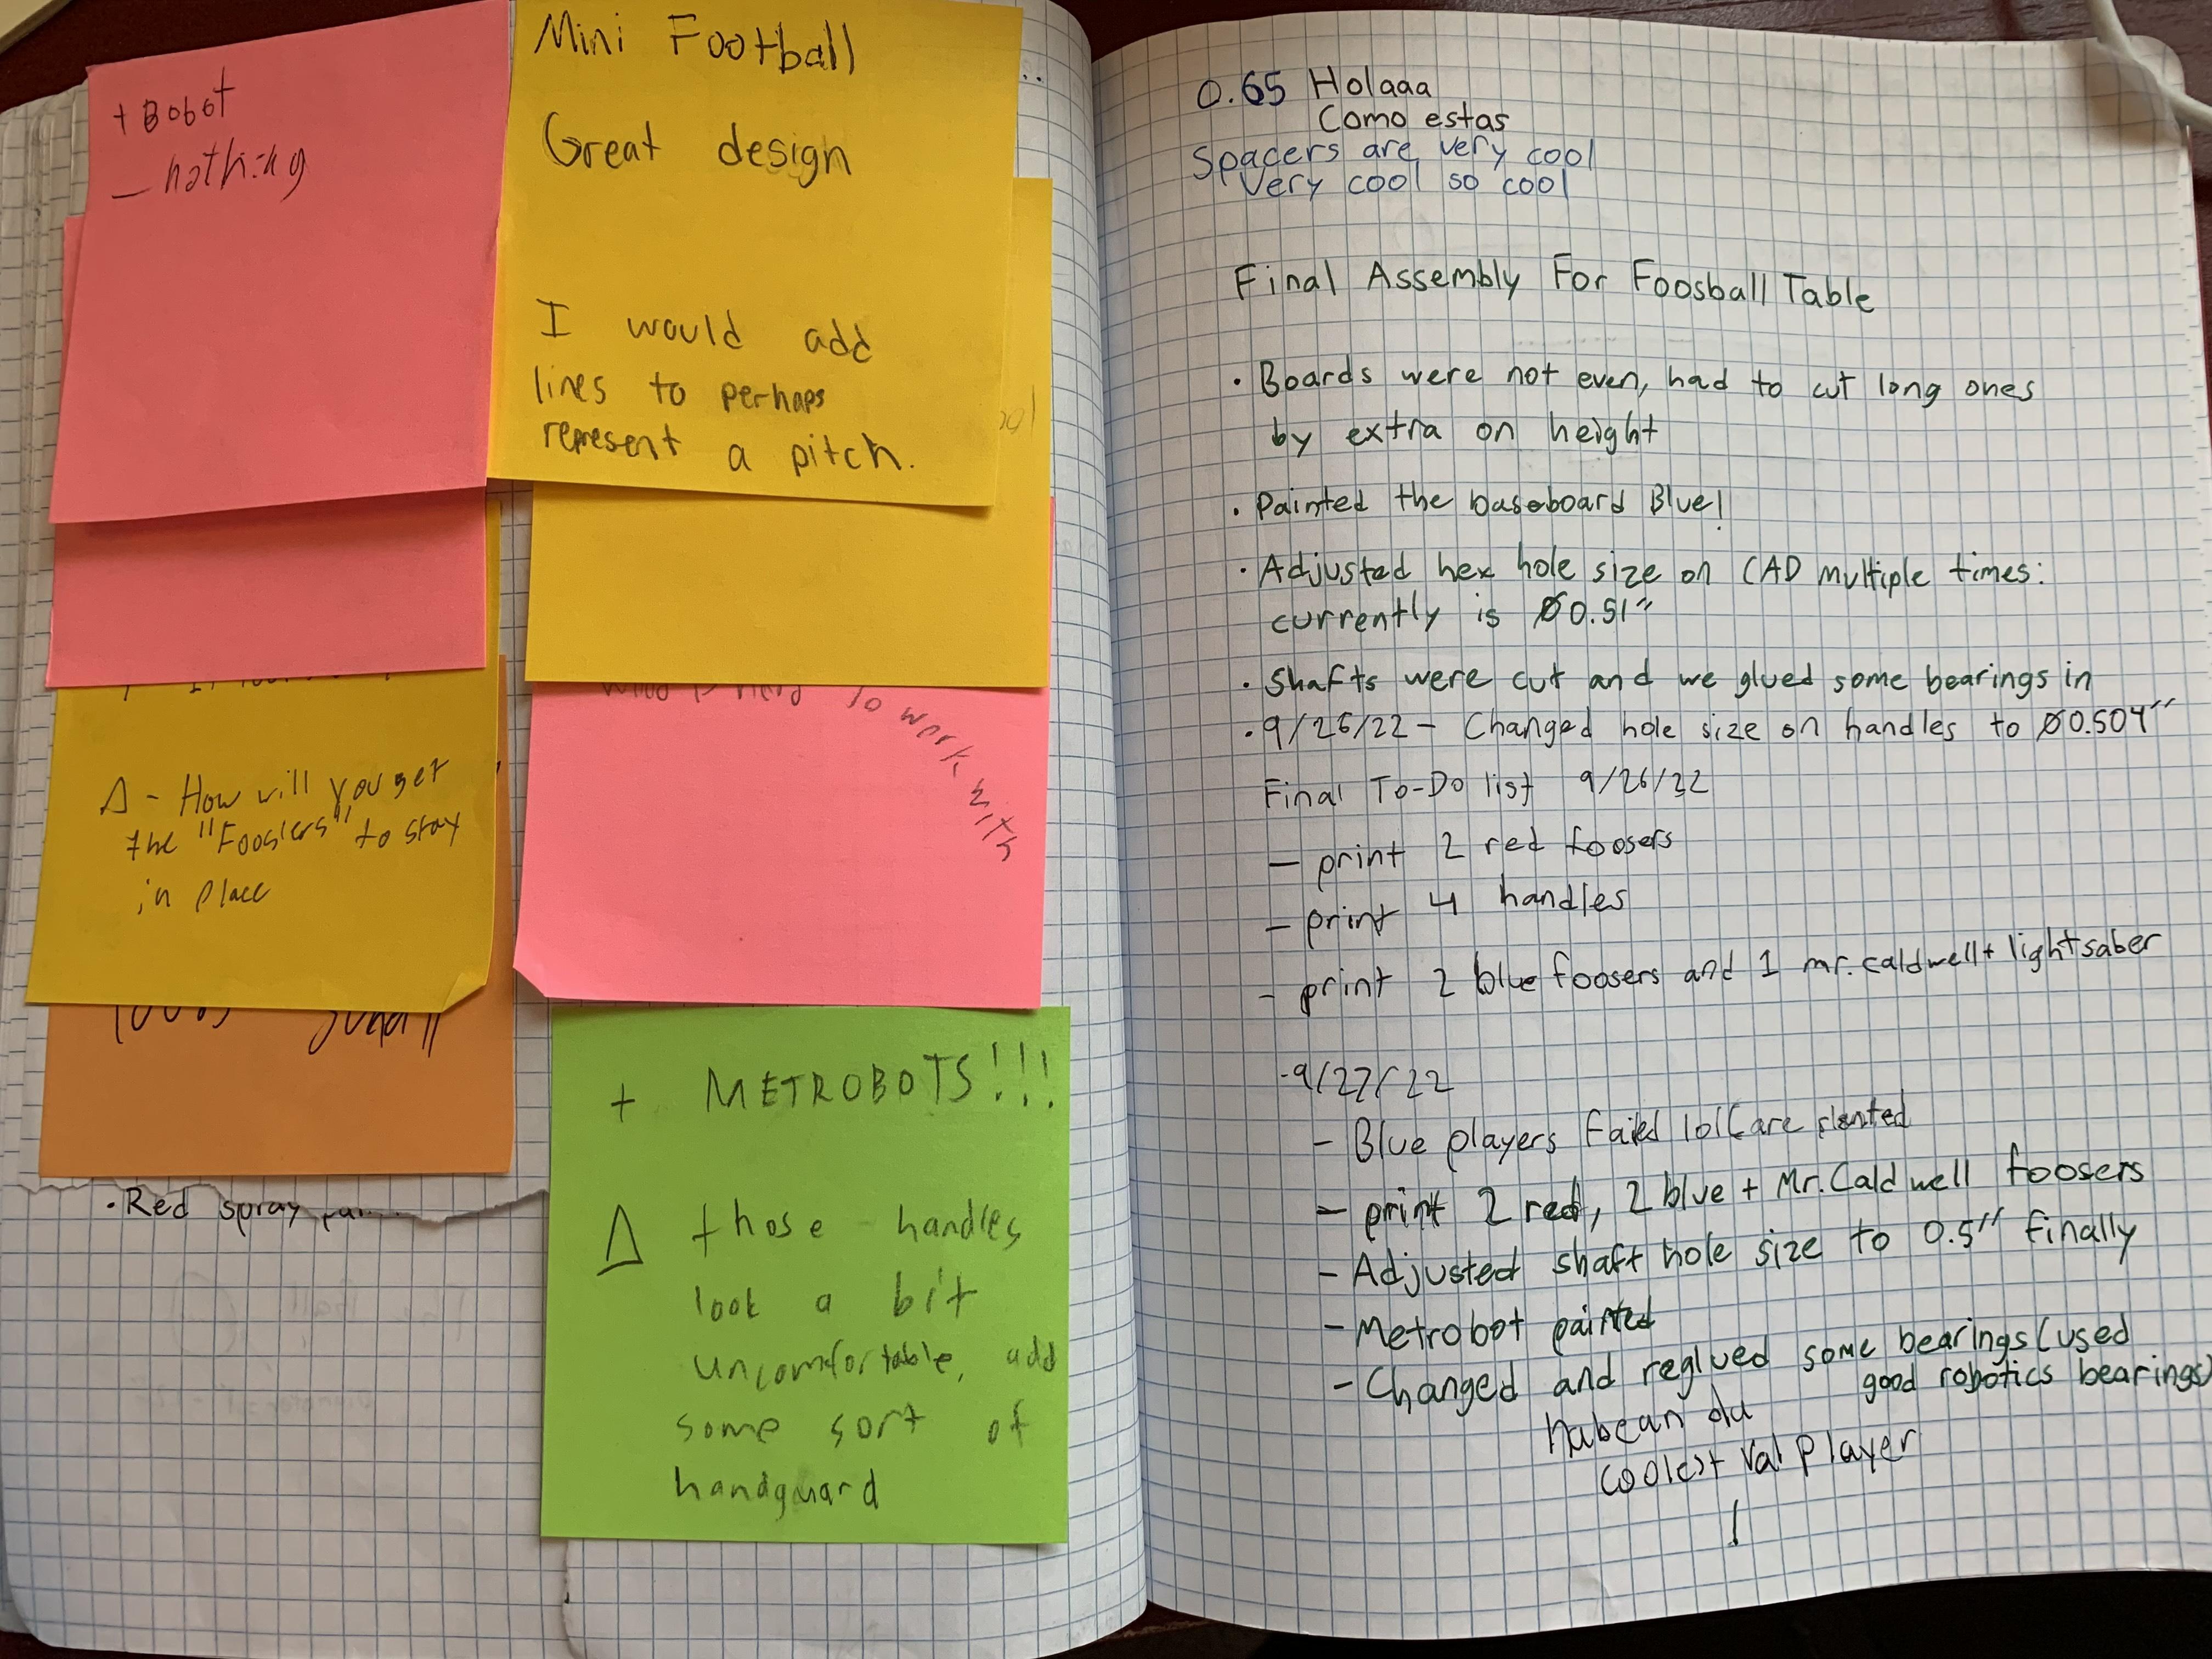 + Bobot
- nothing
Mini Football
Great design
I would add
lines to perhaps
represent a pitch.
Δ - How will you get
the "Fooslers" to stay
in place
to work with
+ METROBOTS!!!
Δ those handles
look a bit
uncomfortable, add
some sort of
handguard
• Red spray
0.65 Holaaa
Como estas
Spacers are very cool
very cool so cool
Final Assembly For Foosball Table
• Boards were not even, had to cut long ones
by extra on height
• Painted the baseboard Blue!
• Adjusted hex hole size on CAD multiple times:
currently is Ø0.51"
• Shafts were cut and we glued some bearings in
• 9/26/22 - Changed hole size on handles to Ø0.504"
Final To-Do list 9/26/22
- print 2 red foosers
- print 4 handles
- print 2 blue foosers and 1 mr. caldwell + lightsaber
-9/27/22
- Blue players Failed lol (are slanted
- print 2 red, 2 blue + Mr. Caldwell foosers
- Adjusted shaft hole size to 0.5" finally
- Metrobot painted
- Changed and reglued some bearings (used
good robotics bearings)
coolest Val Player
!